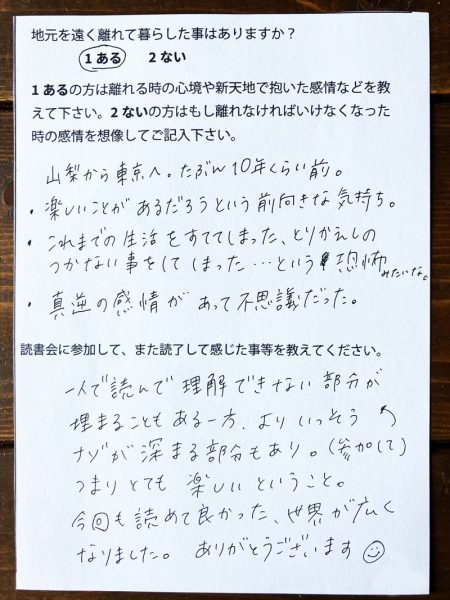 地元を遠く離れて暮らした事はありますか？
1 ある　2 ない
1 あるの方は離れる時の心境や新天地で抱いた感情などを教
えて下さい。2 ないの方はもし離れなければいけなくなった
時の感情を想像してご記入下さい。
山梨から東京へ。たぶん10年くらい前。
・楽しいことがあるだろうという前向きな気持ち。
・これまでの生活をすててしまった、とりかえしの
つかない事をしてしまった…という恐怖みたいな。
・真逆の感情があって不思議だった。
読書会に参加して、また読了して感じた事等を教えてください。
一人で読んで理解できない部分が
埋まることもある一方、よりいっそう
ナゾが深まる部分もあり。（参加して）
つまりとても楽しいということ。
今回も読めて良かった、世界が広く
なりました。ありがとうございます